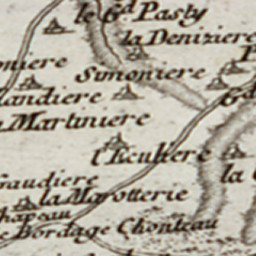 le Gd Pasty
la Deniziere
oniere
Simoniere
andiere
Gd
Martiniere
l'Ecultere
la
raudiere
la Marotterie
hapeau
e Bordage Chonteau